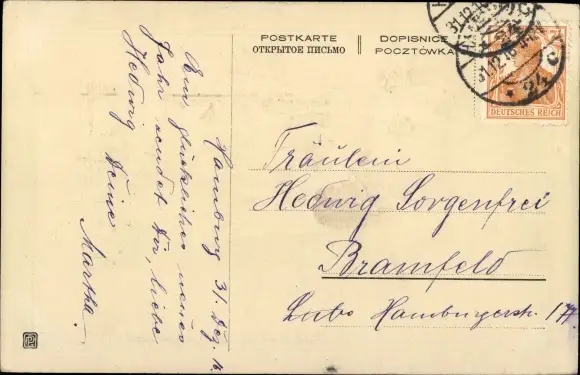 POSTKARTE
ОТКРЫТОЕ ПИСЬМО
DOPISNICE
POCZTÓWKA
31.12.16
24
c
DEUTSCHES REICH
Hamburg 31. Dez. 16.
Ein glückliches neues
Jahr sendet Dir, liebe
Hedwig Deine
Martha.
Fräulein
Hedwig Sorgenfrei
Bramfeld
Hamburgerstr. 177